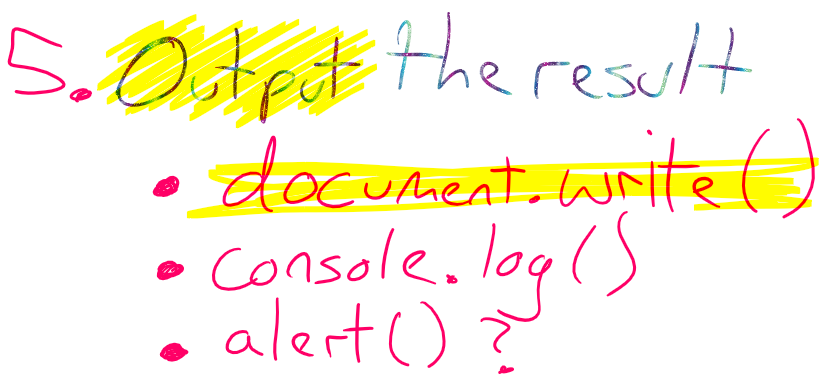 5. Output the result
• document.write()
• console.log()
• alert() ?